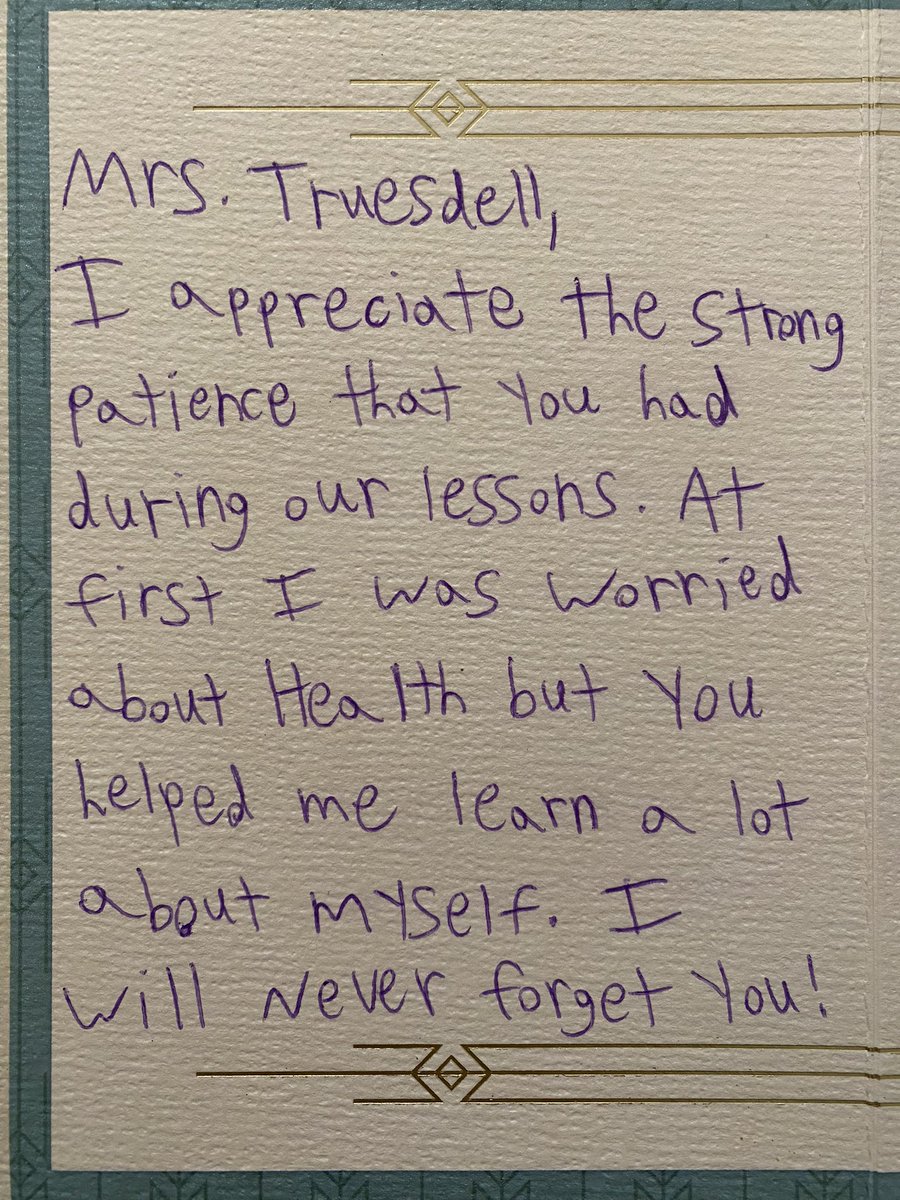 Mrs. Truesdell,
I appreciate the strong
patience that you had
during our lessons. At
first I was worried
about Health but you
helped me learn a lot
about myself. I
will never forget you!